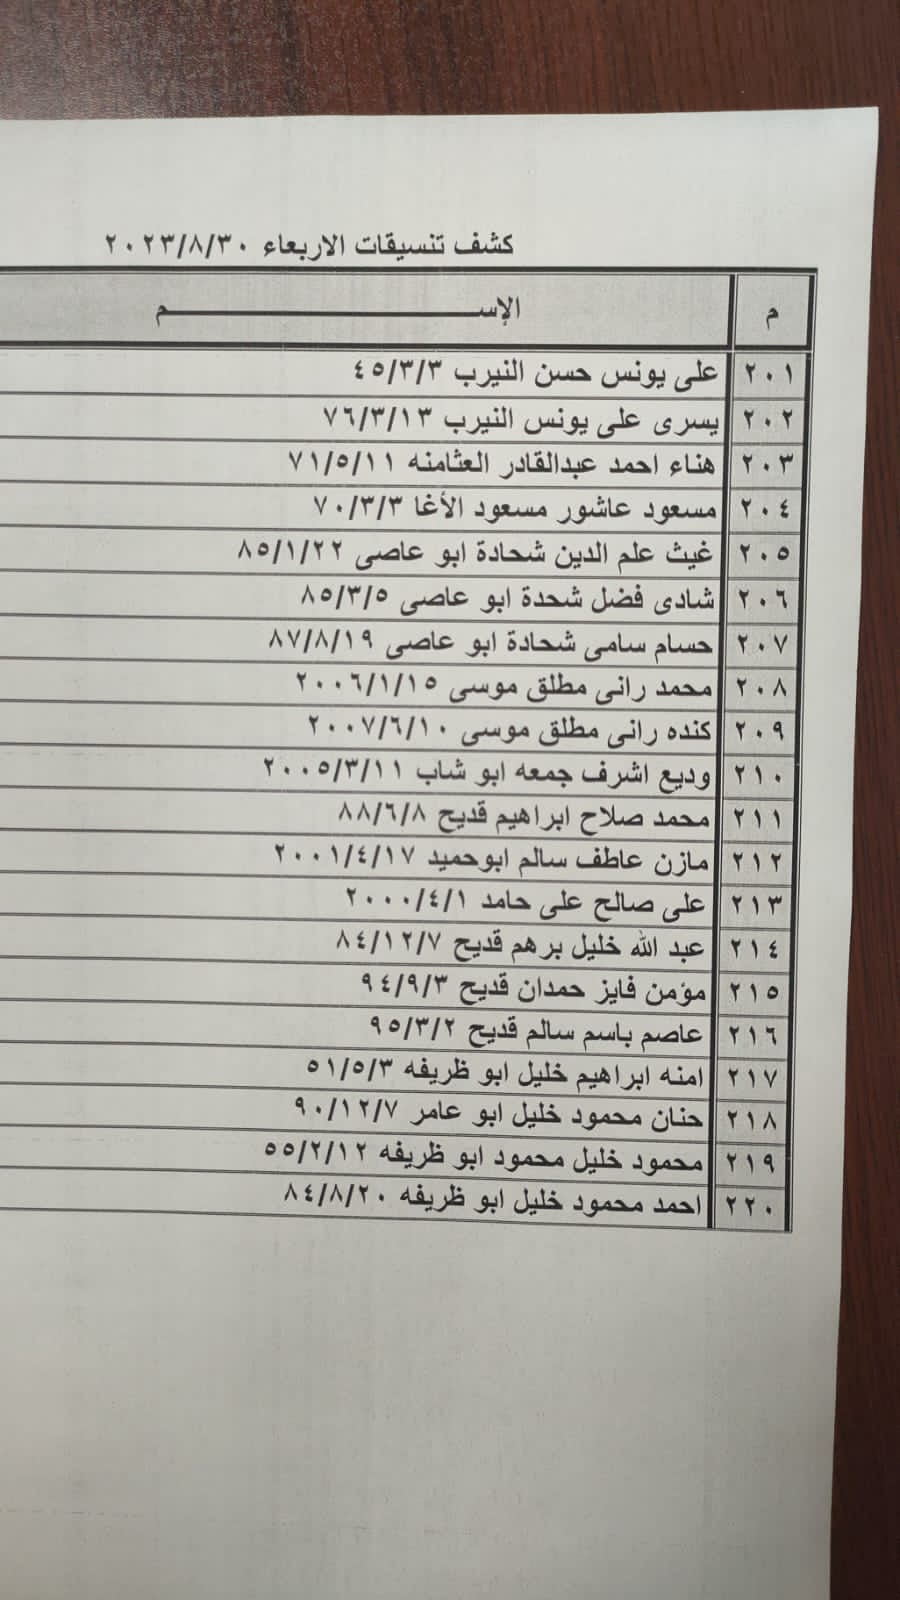 كشف تنسيقات الاربعاء ٢٠٢٣/٨/٣٠
م الإســــــــــــم
٢٠١ على يونس حسن النيرب ٤٥/٣/٣
٢٠٢ يسرى على يونس النيرب ٧٦/٣/١٣
٢٠٣ هناء احمد عبدالقادر العثامنه ٧١/٥/١١
٢٠٤ مسعود عاشور مسعود الأغا ٧٠/٣/٣
٢٠٥ غيث علم الدين شحادة ابو عاصى ٨٥/١/٢٢
٢٠٦ شادى فضل شحدة ابو عاصى ٨٥/٣/٥
٢٠٧ حسام سامى شحادة ابو عاصى ٨٧/٨/١٩
٢٠٨ محمد رانى مطلق موسى ٢٠٠٦/١/١٥
٢٠٩ كنده رانى مطلق موسى ٢٠٠٧/٦/١٠
٢١٠ وديع اشرف جمعه ابو شاب ٢٠٠٥/٣/١١
٢١١ محمد صلاح ابراهيم قديح ٨٨/٦/٨
٢١٢ مازن عاطف سالم ابوحميد ٢٠٠١/٤/١٧
٢١٣ على صالح على حامد ٢٠٠٠/٤/١
٢١٤ عبد الله خليل برهم قديح ٨٤/١٢/٧
٢١٥ مؤمن فايز حمدان قديح ٩٤/٩/٣
٢١٦ عاصم باسم سالم قديح ٩٥/٣/٢
٢١٧ امنه ابراهيم خليل ابو ظريفه ٥١/٥/٣
٢١٨ حنان محمود خليل ابو عامر ٩٠/١٢/٧
٢١٩ محمود خليل محمود ابو ظريفه ٥٥/٢/١٢
٢٢٠ احمد محمود خليل ابو ظريفه ٨٤/٨/٢٠